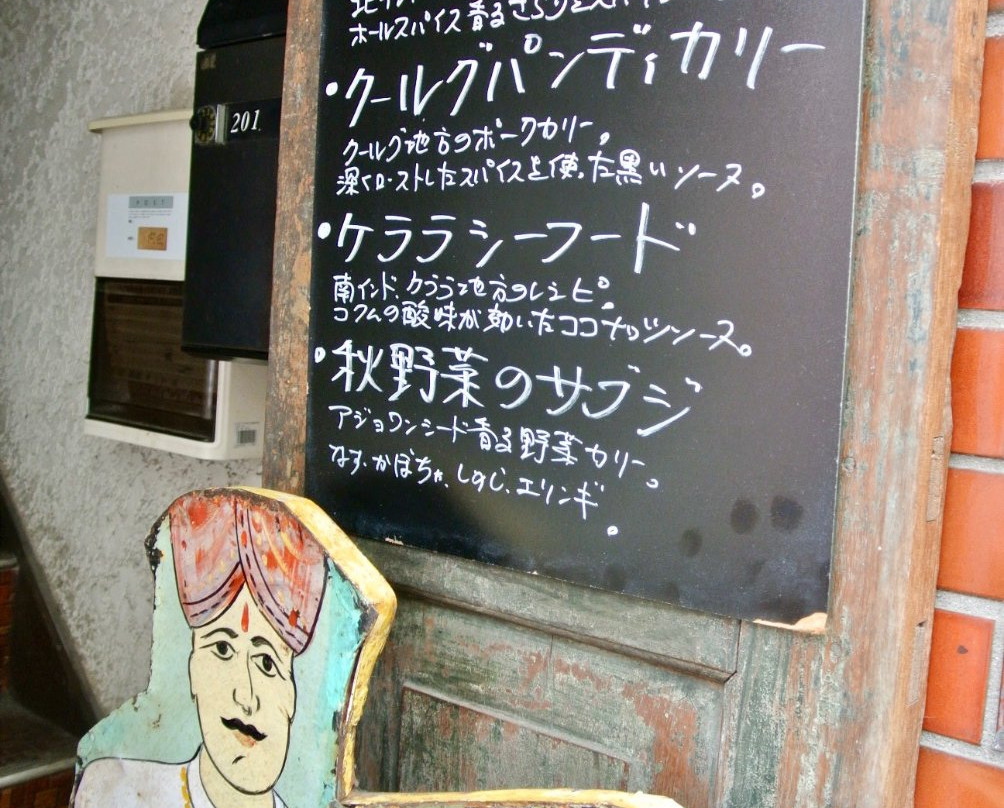 ホールスパイス香るさらりとスパイシー
・クールグパンディカリー
クールグ地方のポークカリー。
深くローストしたスパイスを使った黒いソース。
・ケララシーフード
南インド、ケララ地方のレシピ。
コクムの酸味が効いたココナッツソース。
・秋野菜のサブジ
アジョワンシード香る野菜カリー。
なす、かぼちゃ、しめじ、エリンギ。
201
POST